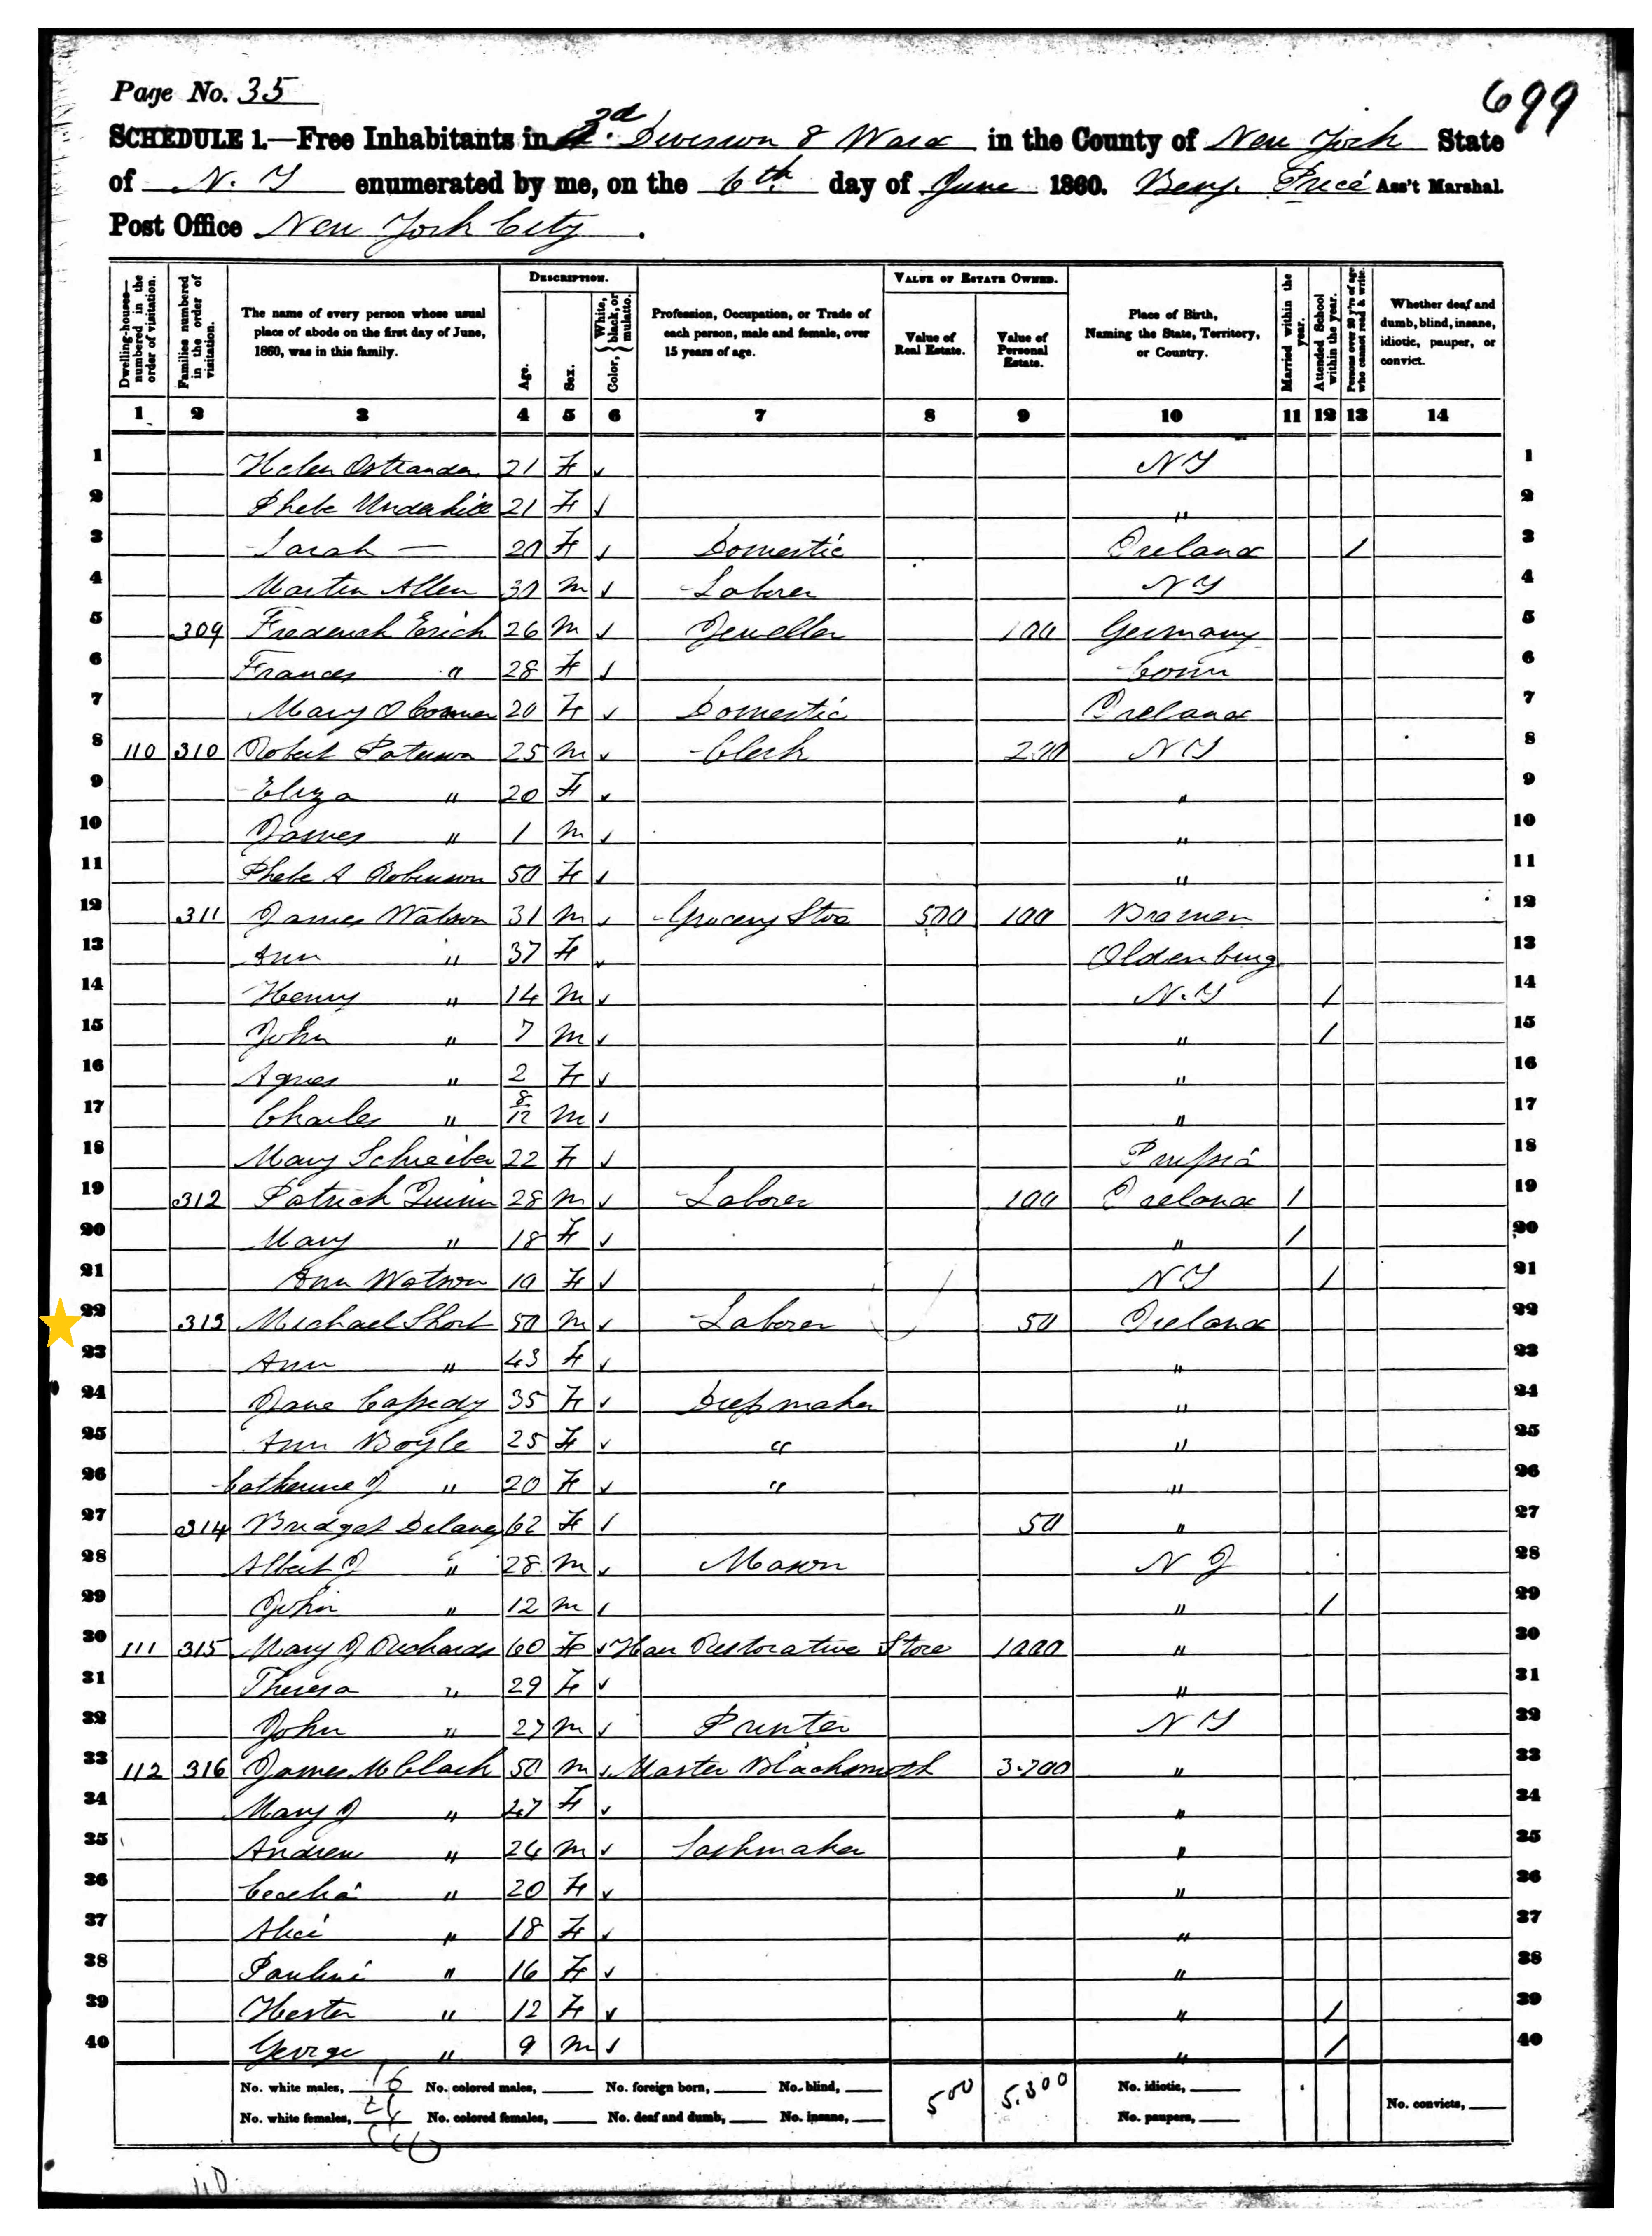 Page No. 35
699
SCHEDULE 1.—Free Inhabitants in 3d Division 8 Ward in the County of New York State
of N. Y enumerated by me, on the 6th day of June 1860. Benj. Price Ass't Marshal.
Post Office New York City.
Dwelling-houses—numbered in the order of visitation. Families numbered in the order of visitation. The name of every person whose usual place of abode on the first day of June, 1860, was in this family. DESCRIPTION. Age. Sex. Color, White, black, or mulatto. Profession, Occupation, or Trade of each person, male and female, over 15 years of age. VALUE OF ESTATE OWNED. Value of Real Estate. Value of Personal Estate. Place of Birth, Naming the State, Territory, or Country. Married within the year. Attended School within the year. Persons over 20 y'rs of age who cannot read & write. Whether deaf and dumb, blind, insane, idiotic, pauper, or convict.
1 2 3 4 5 6 7 8 9 10 11 12 13 14
1 Helen Ostrander 21 F ✓ N Y 1
2 Phebe Underhill 21 F ✓ " 2
3 Sarah — 20 F ✓ Domestic Ireland / 3
4 Martin Allen 30 m ✓ Laborer N Y 4
5 309 Frederick Erich 26 m ✓ Jeweller 100 Germany 5
6 Frances " 28 F ✓ Conn 6
7 Mary O Connor 20 F ✓ Domestic Ireland 7
8 110 310 Robert Paterson 25 m ✓ Clerk 200 N Y 8
9 Eliza " 20 F ✓ " 9
10 James " 1 m ✓ " 10
11 Phebe A Robinson 50 F ✓ " 11
12 311 James Watson 31 m ✓ Grocery Stoe 500 100 Bremen 12
13 Ann " 37 F ✓ Oldenburg 13
14 Henry " 14 m ✓ N.Y / 14
15 John " 7 m ✓ " / 15
16 Agnes " 2 F ✓ " 16
17 Charles " 8/12 m ✓ " 17
18 Mary Schreiber 22 F ✓ Prussia 18
19 312 Patrick Quinn 28 m ✓ Laborer 100 Ireland / 19
20 Mary " 18 F ✓ " / 20
21 Ann Watson 10 F ✓ N Y / 21
22 313 Michael Short 50 m ✓ Laborer 50 Ireland 22
23 Ann " 43 F ✓ " 23
24 Jane Cassedy 35 F ✓ Dressmaker " 24
25 Ann Boyle 25 F ✓ " " 25
26 Catherine J " 20 F ✓ " " 26
27 314 Bridget Delaney 62 F ✓ 50 " 27
28 Albert J " 28 m ✓ Mason N J 28
29 John " 12 m ✓ " / 29
30 111 315 Mary J Richards 60 F ✓ Hair Restorative Store 1000 " 30
31 Theresa " 29 F ✓ " 31
32 John " 27 m ✓ Printer N Y 32
33 112 316 James M Clark 50 m ✓ Master Blacksmith 3.200 " 33
34 Mary J " 47 F ✓ " 34
35 Andrew " 24 m ✓ Sashmaker " 35
36 Cecelia " 20 F ✓ " 36
37 Alice " 18 F ✓ " 37
38 Pauline " 16 F ✓ " 38
39 Hester " 12 F ✓ " / 39
40 George " 9 m ✓ " / 40
No. white males, 16 No. colored males, No. foreign born, No. blind, 500 5.300 No. idiotic,
No. white females, 24 No. colored females, No. deaf and dumb, No. insane, No. paupers, No. convicts,
40